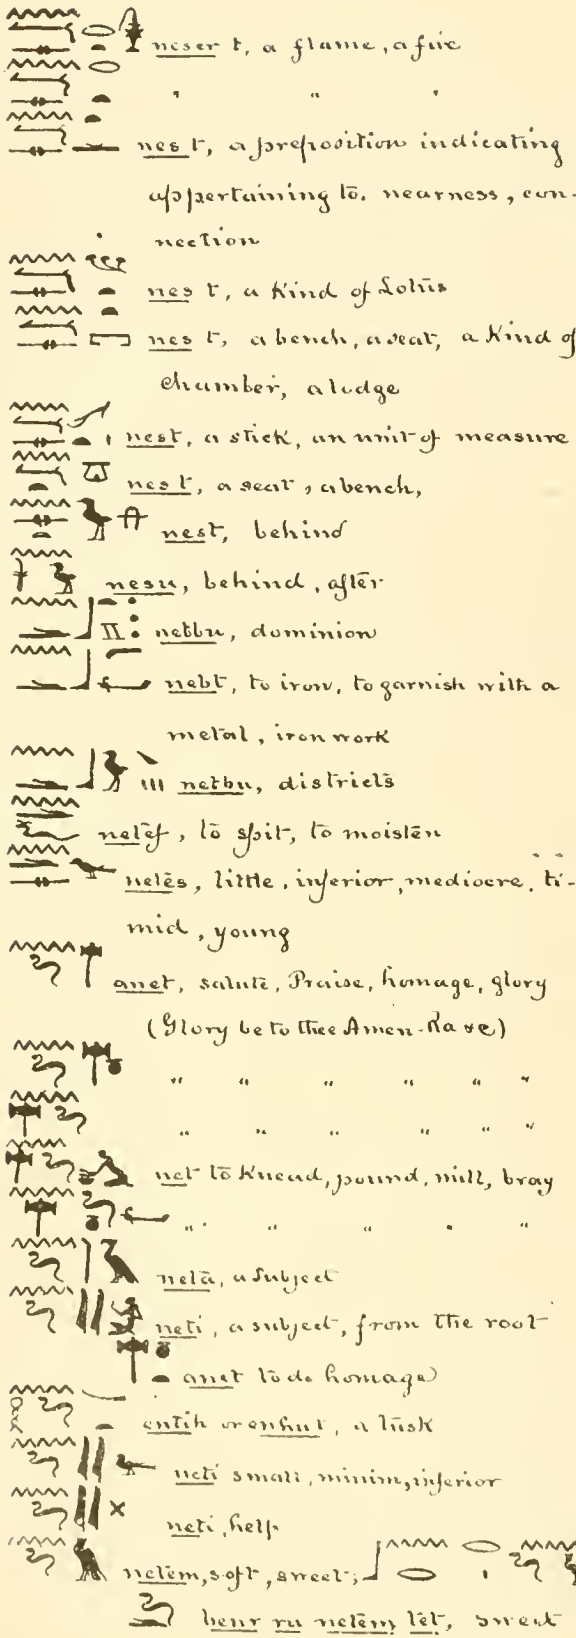 neser t, a flame, a fire
" " "
nes t, a preposition indicating
appertaining to. nearness, con-
nection
nes t, a Kind of Lotus
nes t, a bench, a seat, a Kind of
chamber, a lodge
nest, a stick, an unit of measure
nes t, a seat, a bench,
nest, behind
nesu, behind, after
netbu, dominion
nebt, to iron, to garnish with a
metal, iron work
netbu, districts
netef, to spit, to moisten
netes, little, inferior, mediocre, ti-
mid, young
anet, salute, Praise, homage, glory
(Glory be to thee Amen-Ra &c)
" " " " " "
" " " " " "
net to Knead, pound, mill, bray
" " " " "
neta, a subject
neti, a subject, from the root
anet to do homage
entih or enhut, a tusk
neti small, minim, inferior
neti, help
netem, soft, sweet;
benr ru netem tet, sweet